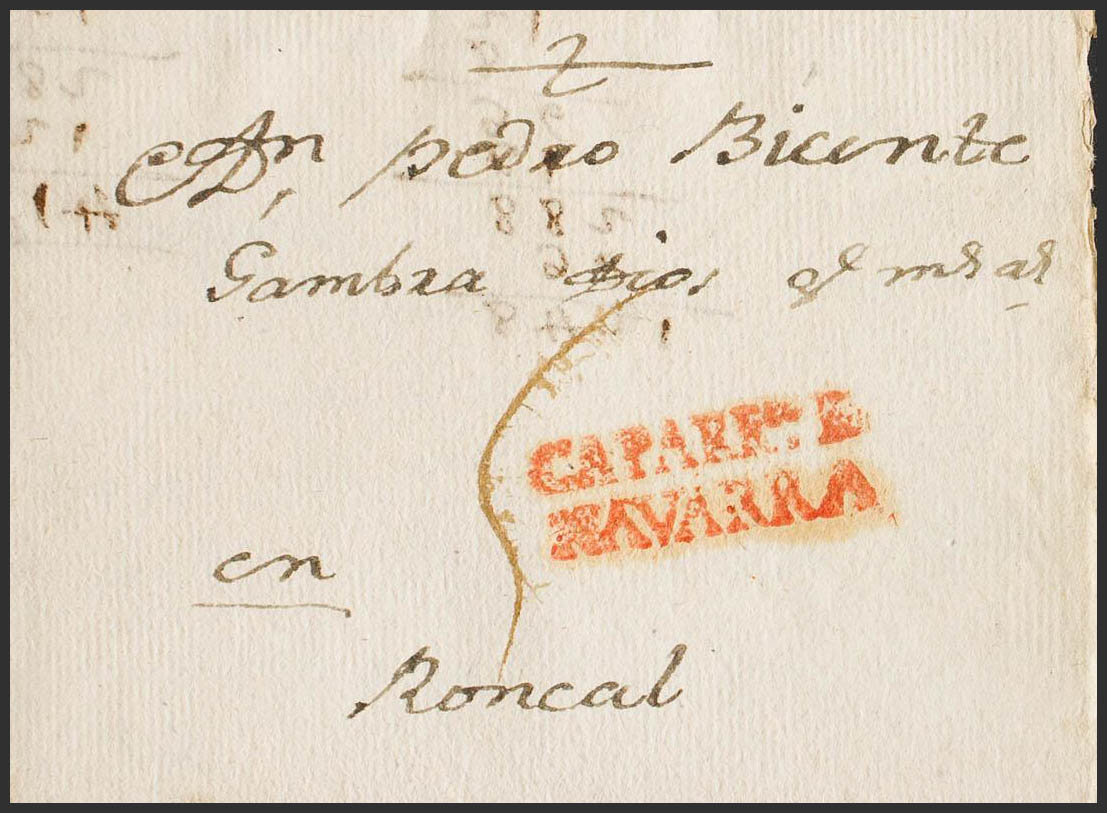 A Dn pedro Bicente
Gambra Dios qe ms as
CAPARR.º E
NAVARRA
en
Roncal